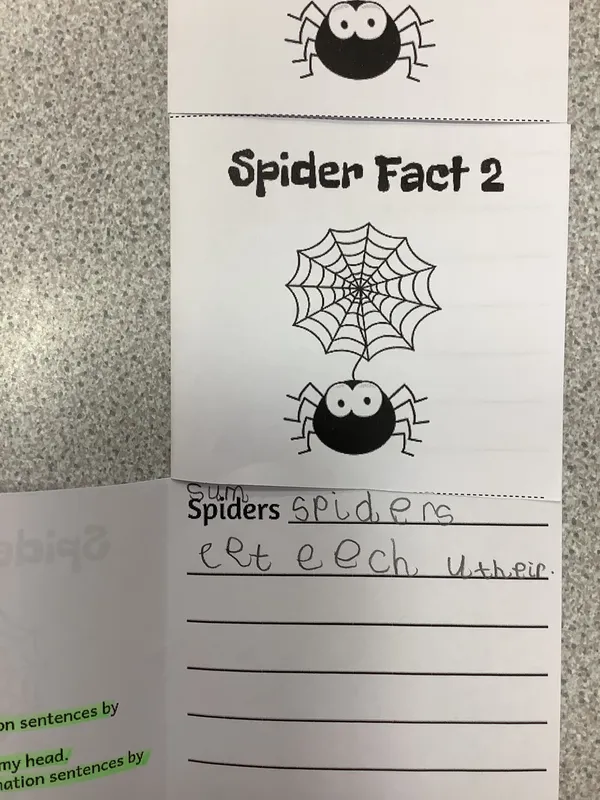 Spider Fact 2
sum
Spiders spiders
eet eech utheir.
on sentences by
my head.
nation sentences by